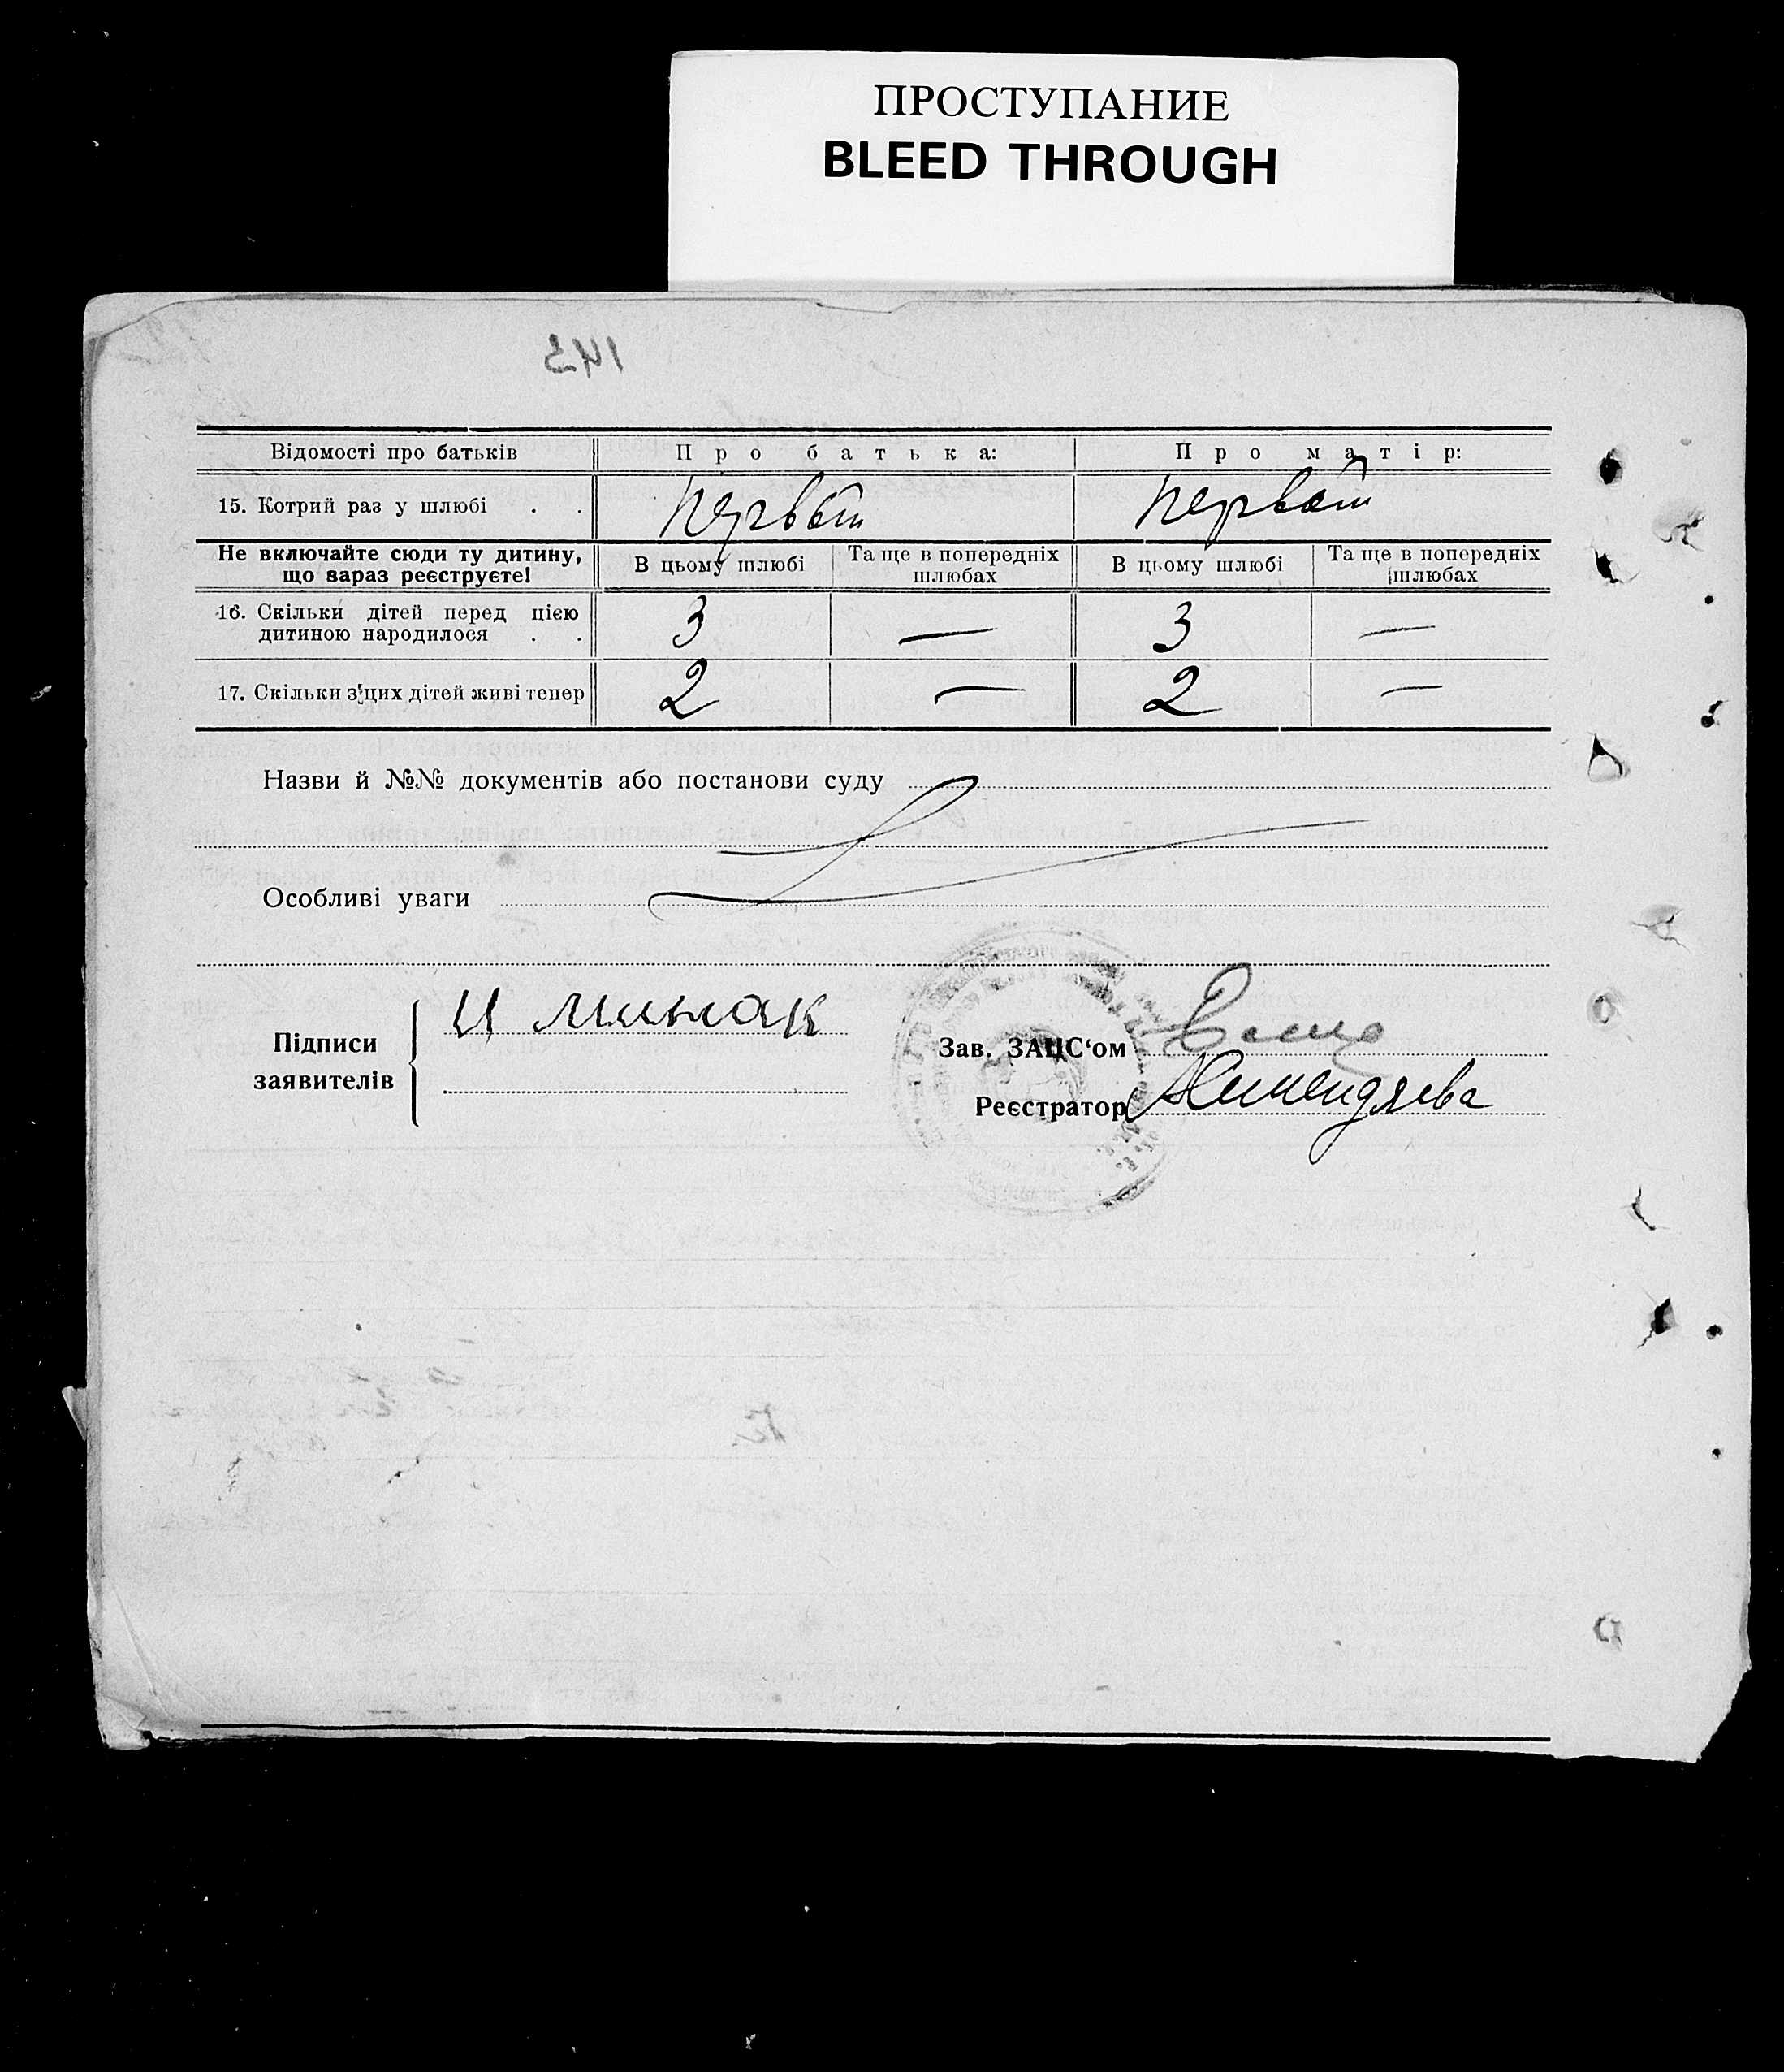 ПРОСТУПАНИЕ
BLEED THROUGH
143
Відомості про батьків Про батька: Про матір:
15. Котрий раз у шлюбі . . первый первый
Не включайте сюди ту дитину, що зараз реєструєте! В цьому шлюбі Та ще в попередніх шлюбах В цьому шлюбі Та ще в попередніх шлюбах
16. Скільки дітей перед цією
дитиною народилося . . 3 — 3 —
17. Скільки з цих дітей живі тепер 2 — 2 —
Назви й №№ документів або постанови суду
Особливі уваги
Підписи
заявителів
И Минак
Зав. ЗАЦС‘ом
Реєстратор